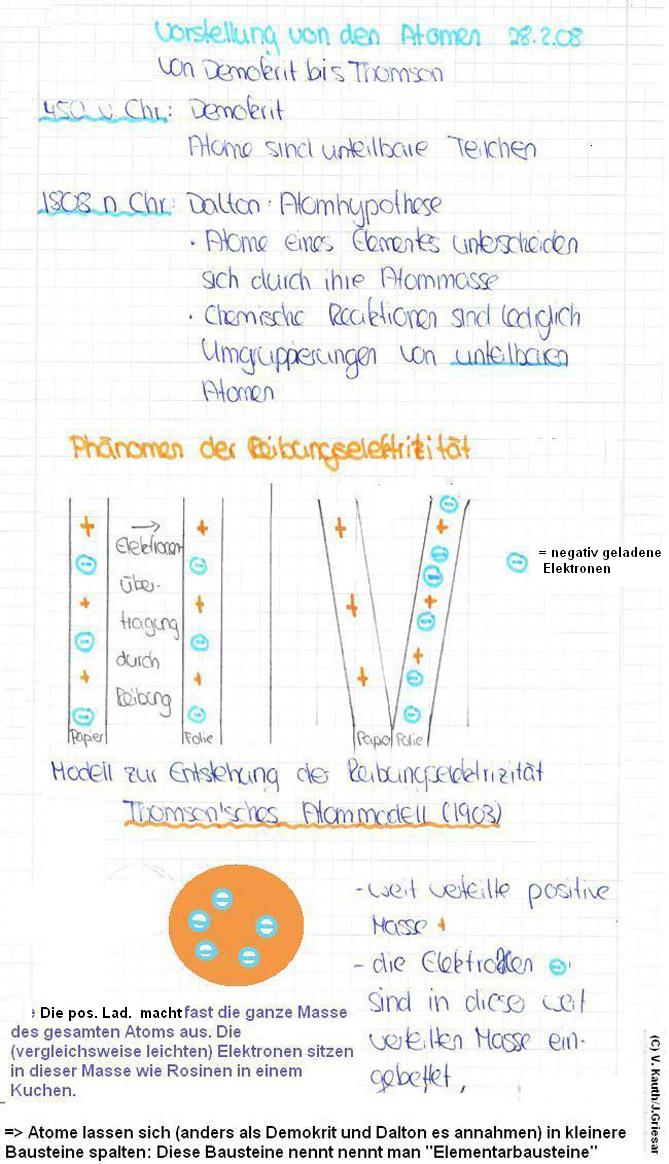 Vorstellung von den Atomen 28.2.08
Von Demokrit bis Thomson
450 v. Chr.: Demokrit
Atome sind unteilbare Teilchen
1808 n. Chr.: Dalton: Atomhypothese
· Atome eines Elementes unterscheiden
sich durch ihre Atommasse
· Chemische Reaktionen sind lediglich
Umgruppierungen von unteilbaren
Atomen
Phänomen der Reibungselektrizität
→
Elektronen
über-
tragung
durch
Reibung
Papier
Folie
Papier
Folie
= negativ geladene
Elektronen
Modell zur Entstehung der Reibungselektrizität
Thomson'sches Atommodell (1903)
- weit verteilte positive
Masse +
- die Elektronen ⊖
sind in diese weit
verteilten Masse ein-
gebettet,
Die pos. Lad. macht fast die ganze Masse
des gesamten Atoms aus. Die
(vergleichsweise leichten) Elektronen sitzen
in dieser Masse wie Rosinen in einem
Kuchen.
(C) V. Karath/J.Griesar
=> Atome lassen sich (anders als Demokrit und Dalton es annahmen) in kleinere
Bausteine spalten: Diese Bausteine nennt nennt man "Elementarbausteine"